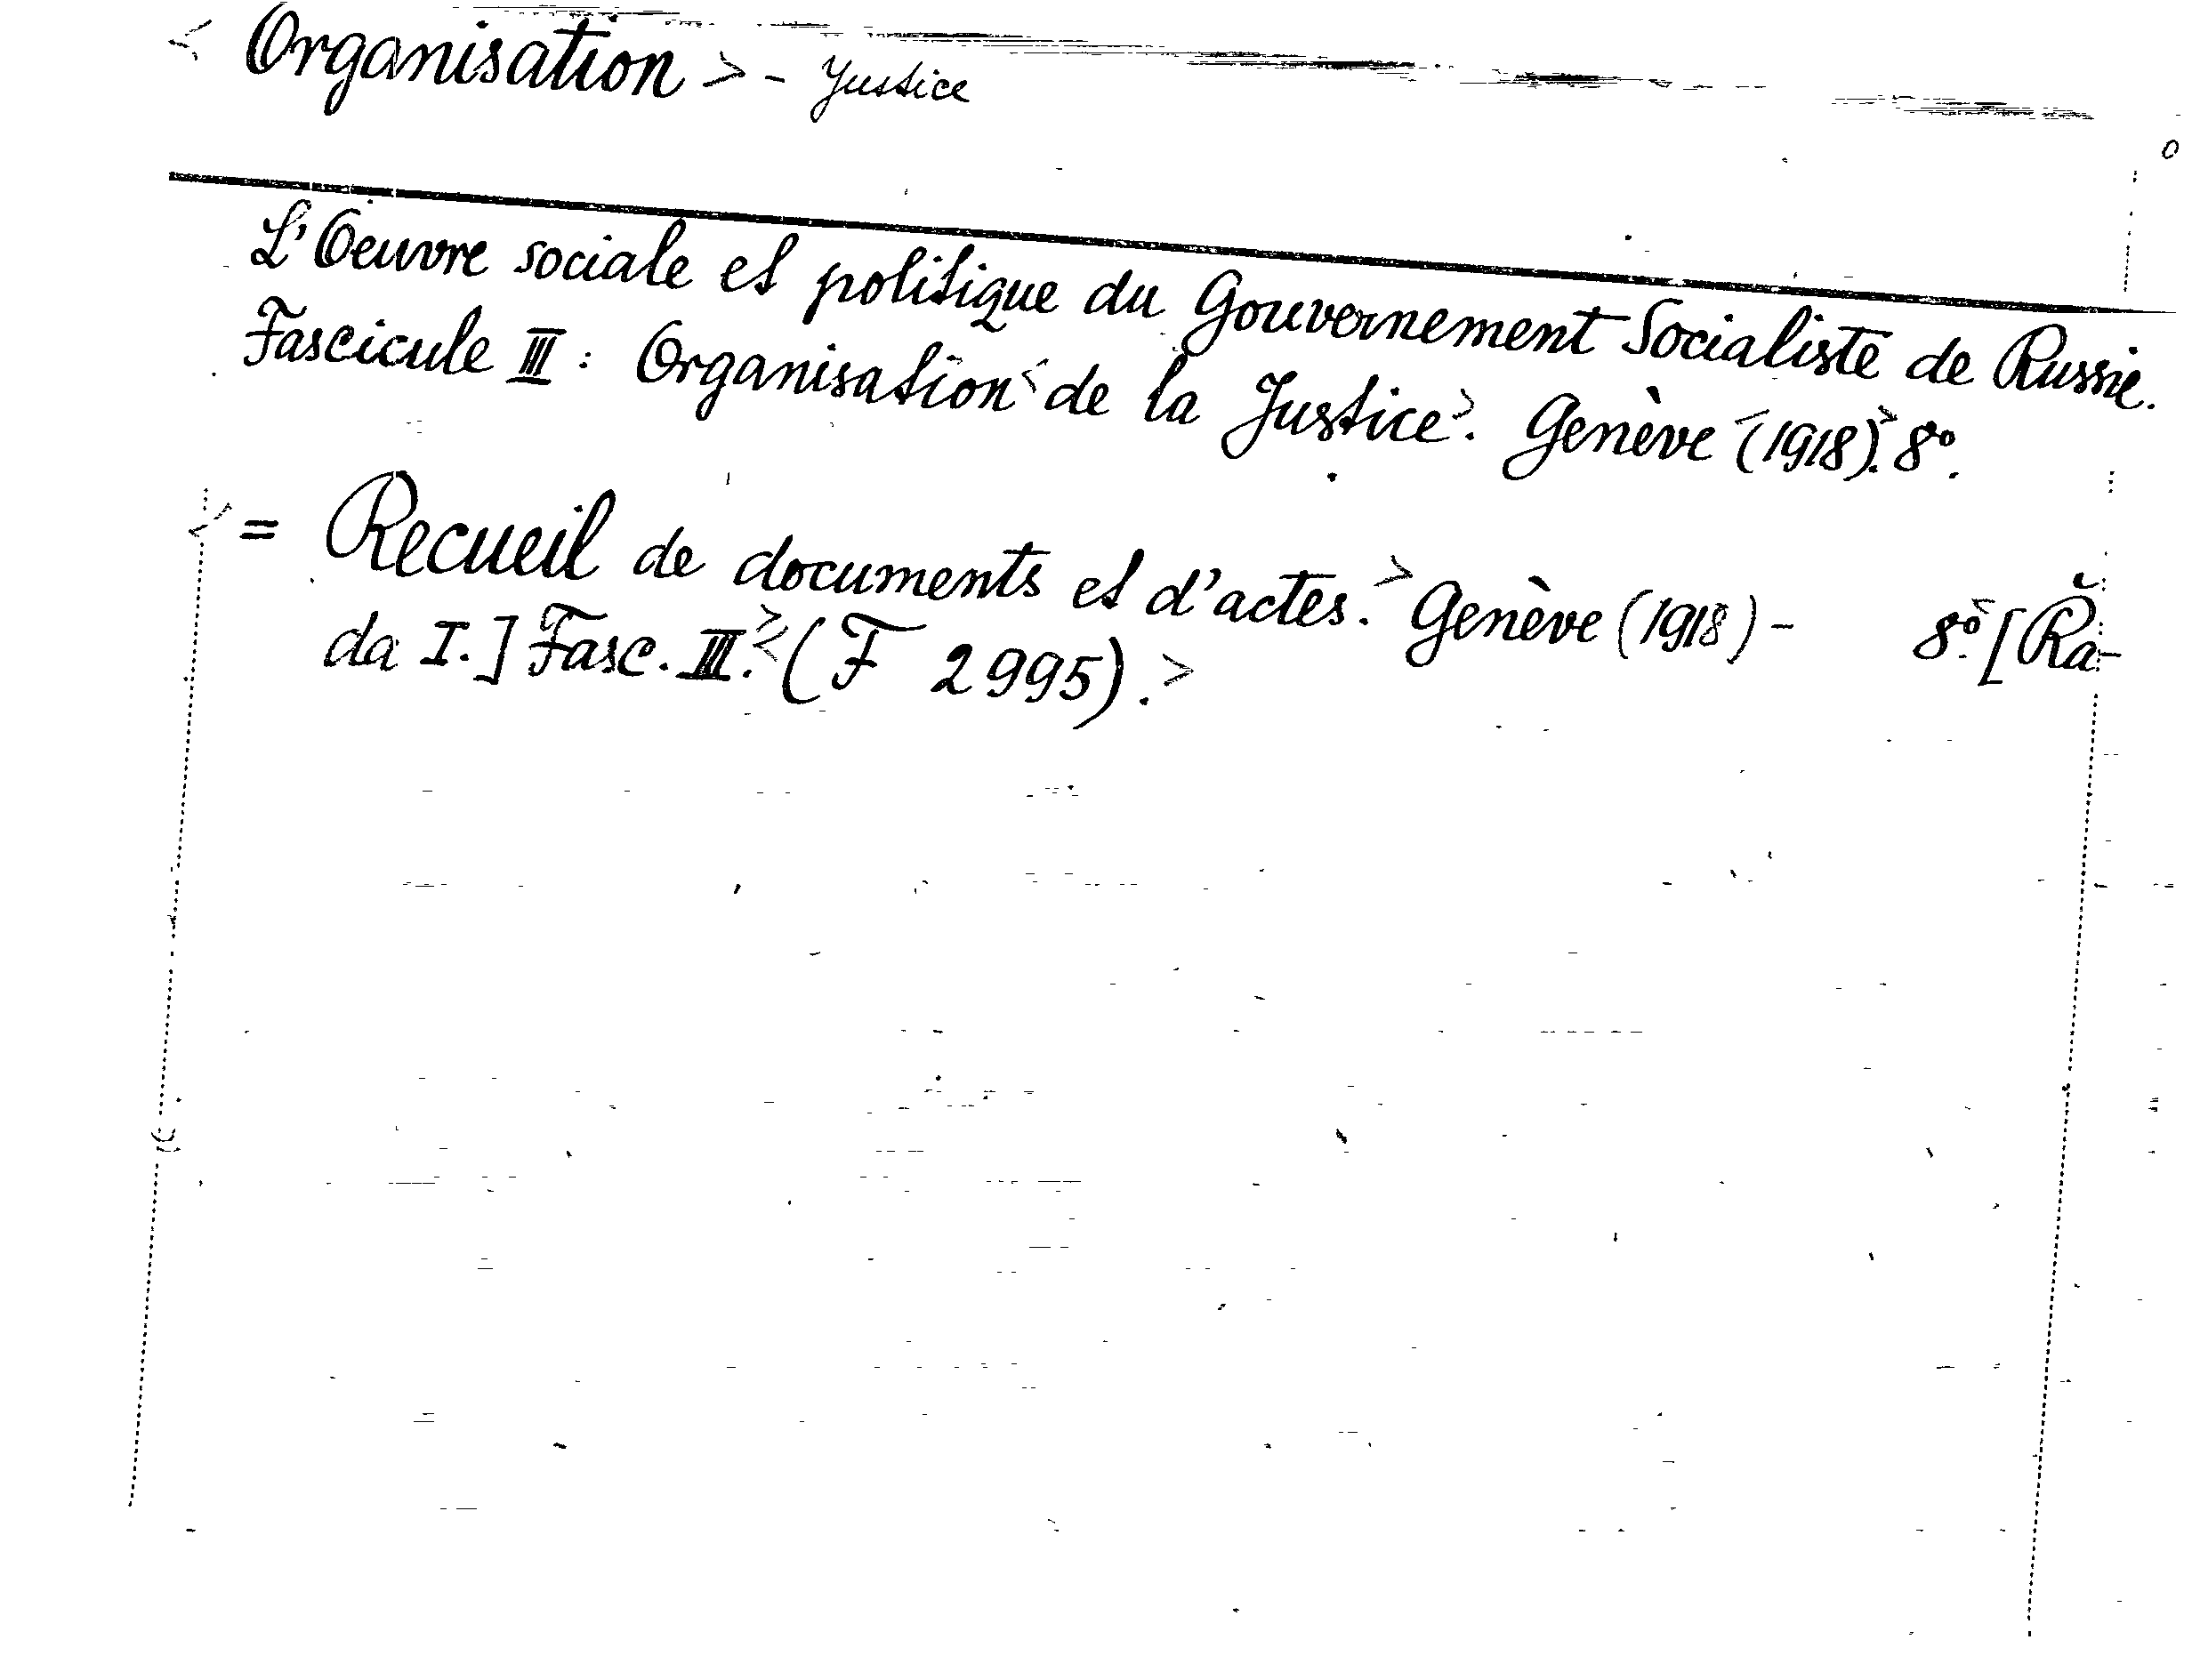 < Organisation > - Justice
L'Oeuvre sociale et politique du Gouvernement Socialiste de Russie.
Fascicule III : Organisation < de la Justice >. Genève < (1918) >. 8°.
< = Recueil de documents et d'actes. > Genève (1918) - 8°. < [Řa-
da I.] Fasc. III. > < (F 2995). >